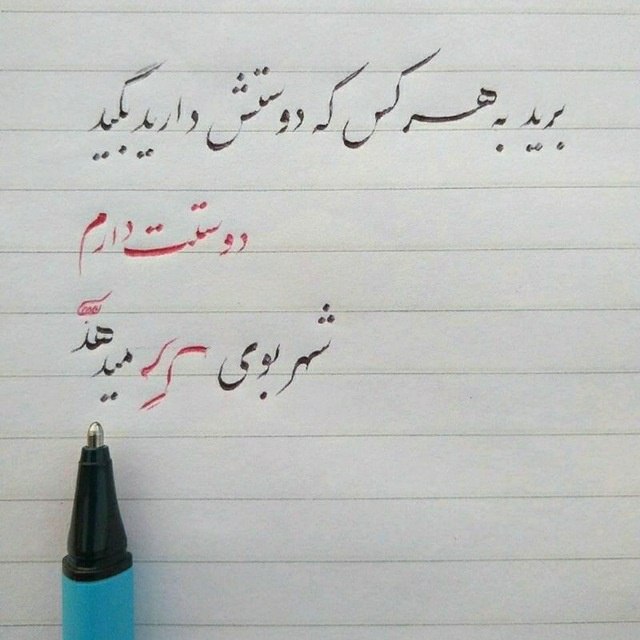 برید به هر کس که دوستش دارید بگید
دوستت دارم
شهر بوی
میدهد